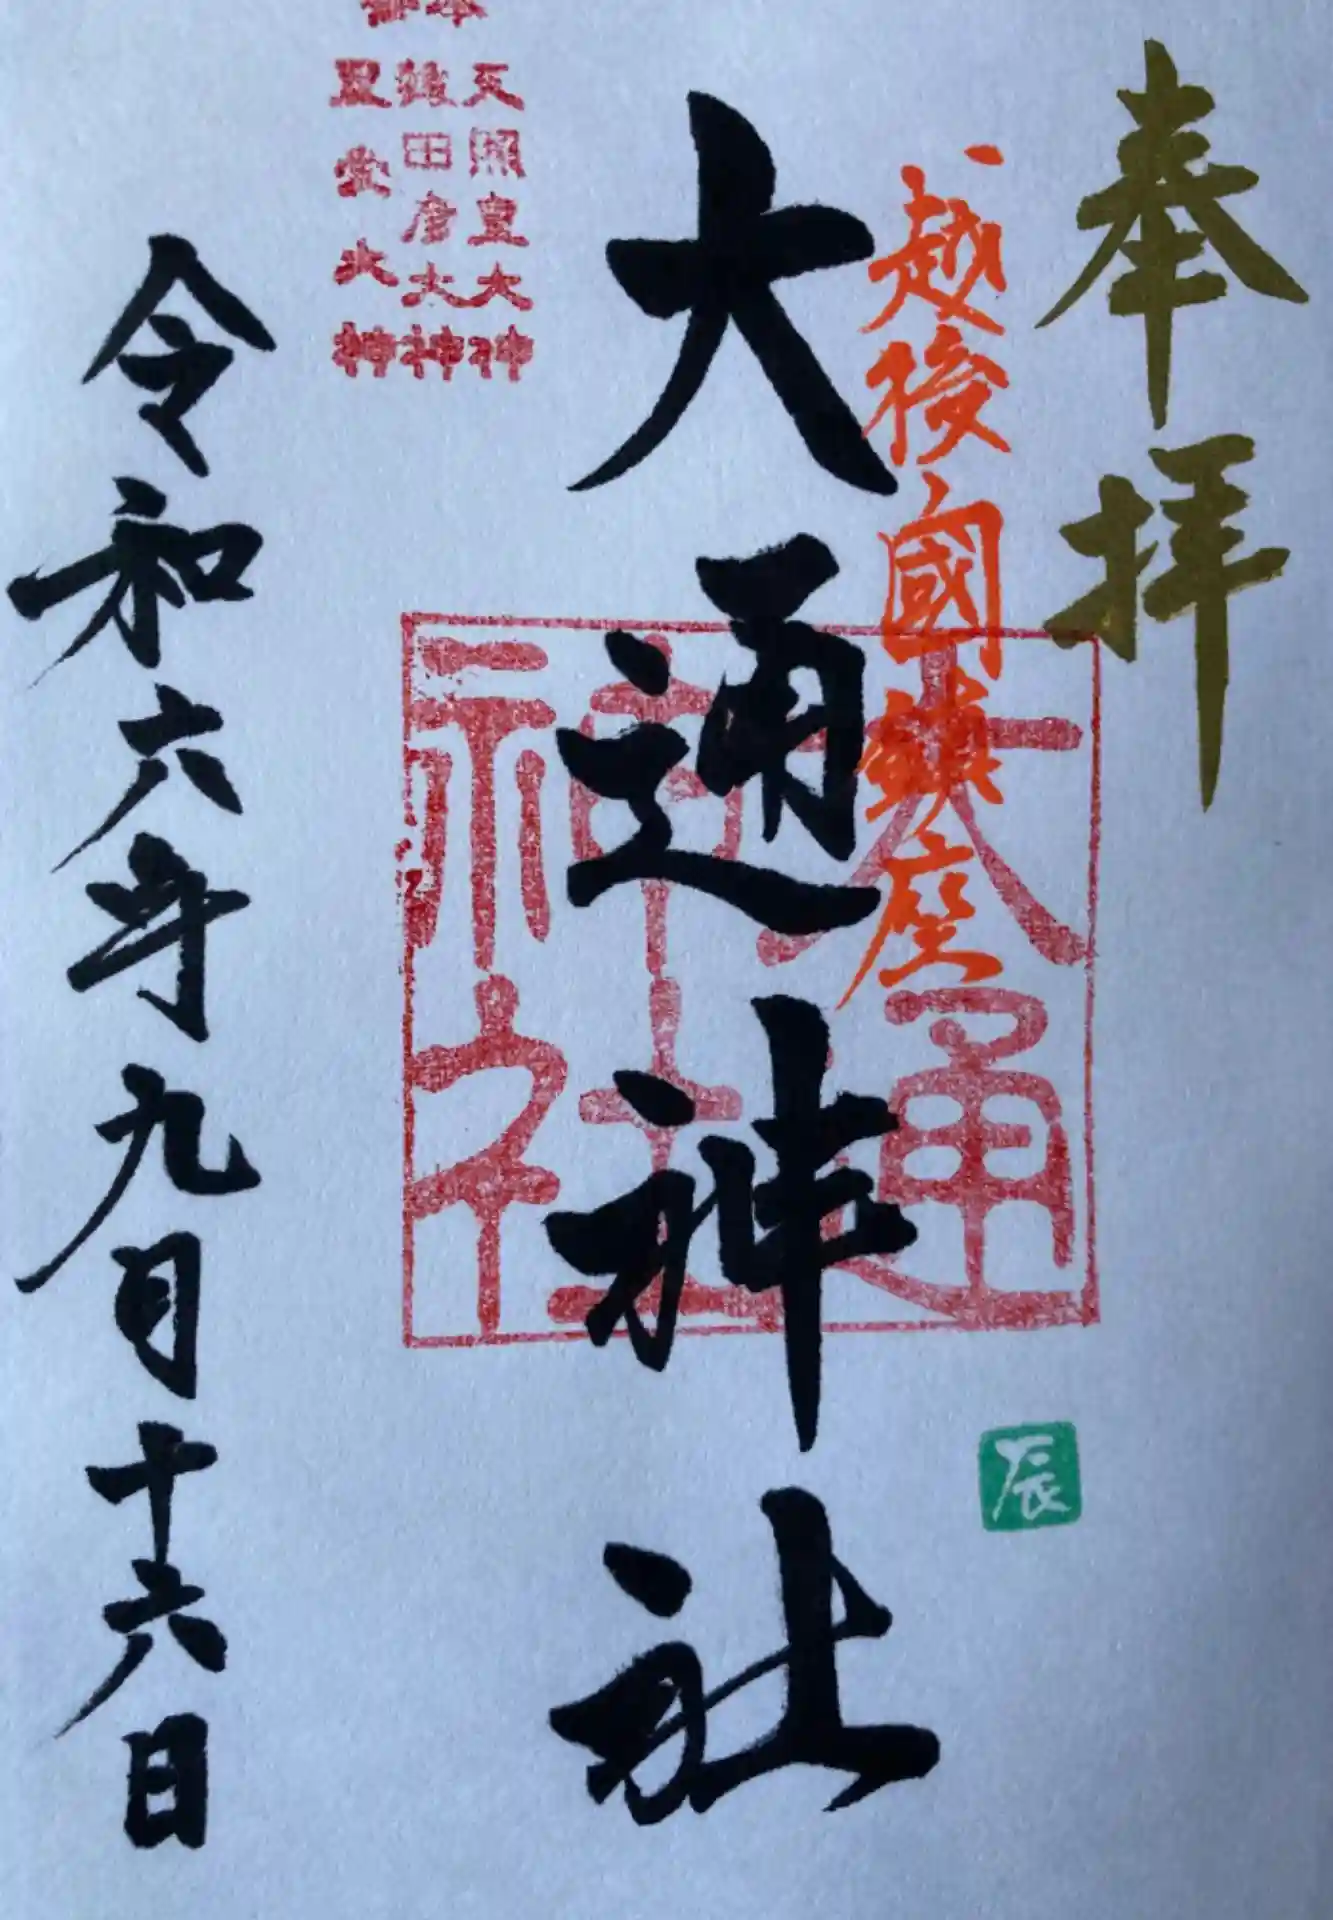 奉拝
越後國鎮座
大通神社
大通
神社
辰
天照皇大神
猿田彦大神
豊受大神
令和六年九月十六日